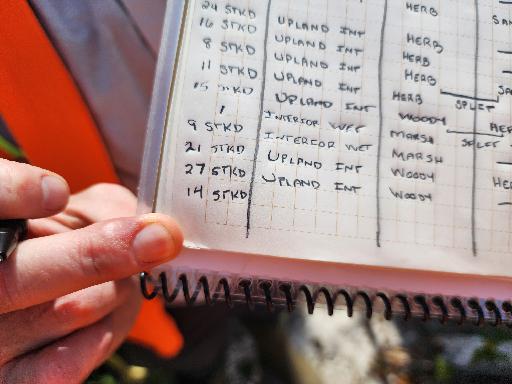 24 STKD HERB
16 STKD UPLAND INT SAN
8 STKD UPLAND INT HERB
11 STKD UPLAND INT HERB
15 STKD UPLAND INT HERB SA
1 UPLAND INT HERB SPLIT
9 STKD INTERIOR WET WOODY HER
21 STKD INTERIOR WET MARSH SPLIT
27 STKD UPLAND INT MARSH
14 STKD UPLAND INT WOODY HE
WOODY